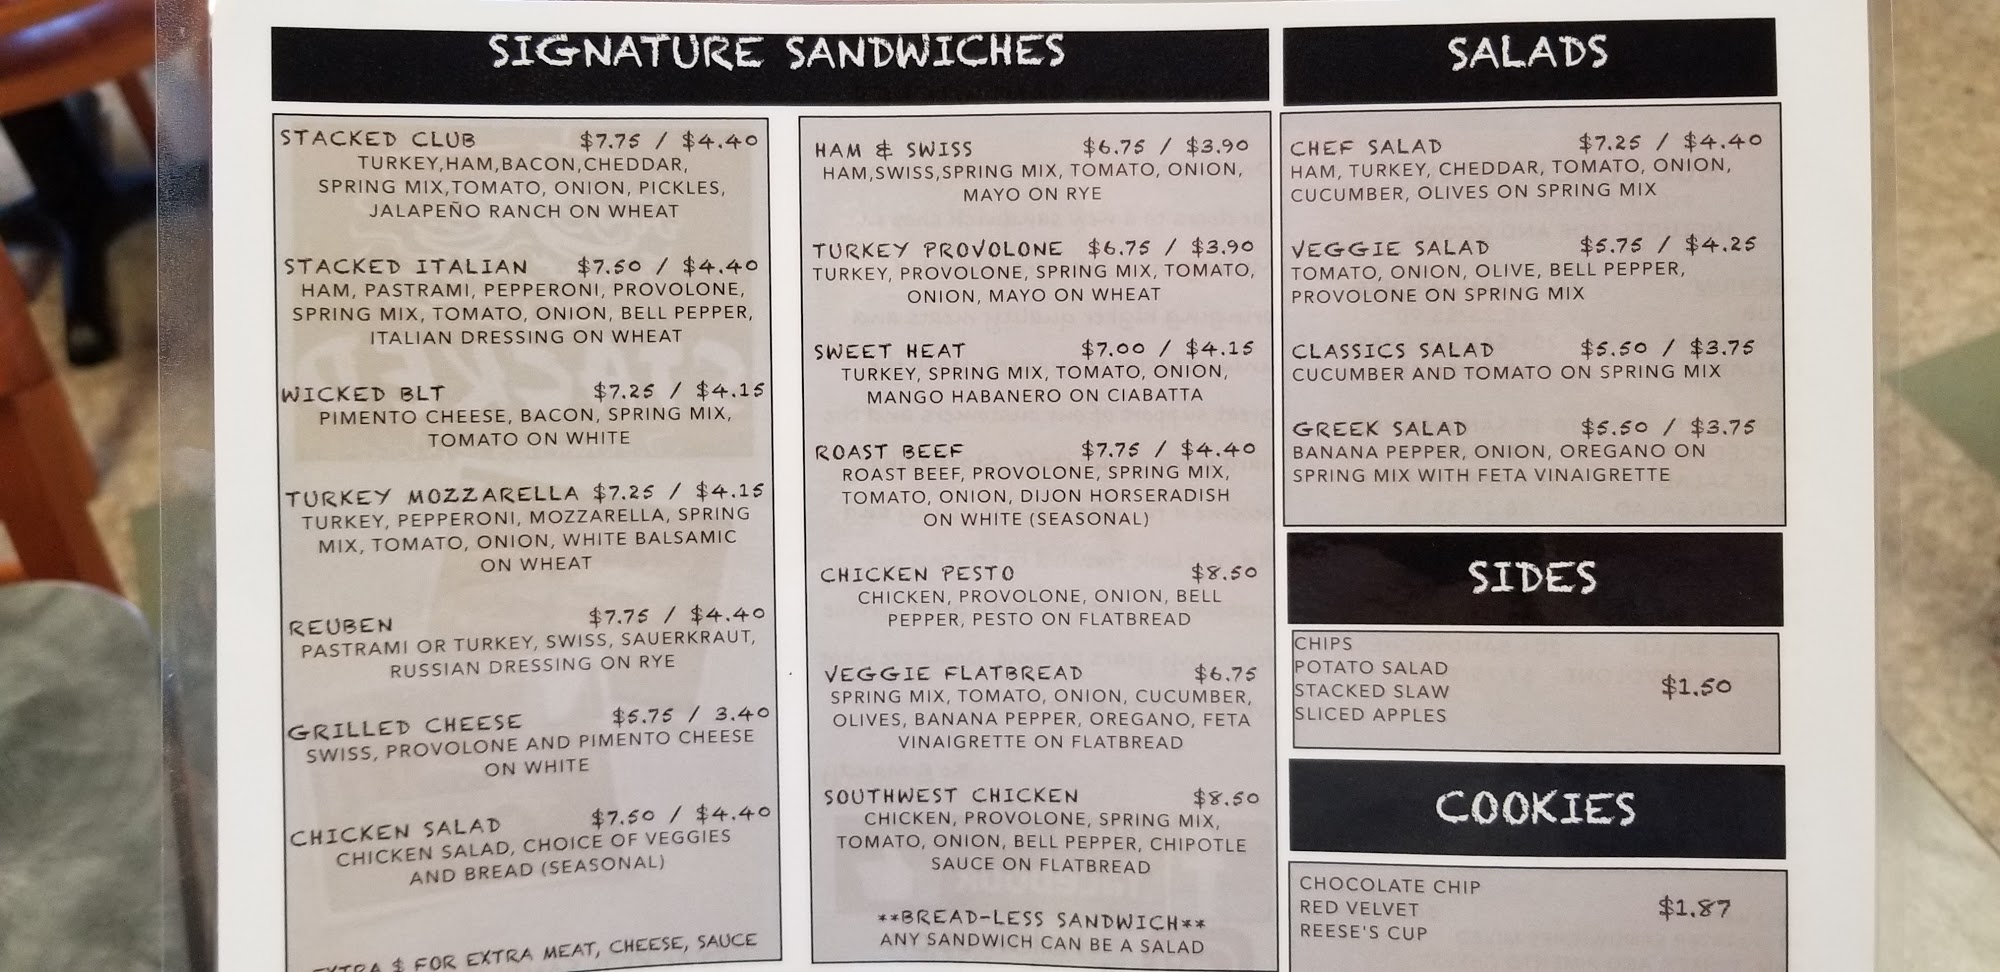 SIGNATURE SANDWICHES
STACKED CLUB $7.75 / $4.40
TURKEY,HAM,BACON,CHEDDAR,
SPRING MIX,TOMATO, ONION, PICKLES,
JALAPEÑO RANCH ON WHEAT
STACKED ITALIAN $7.50 / $4.40
HAM, PASTRAMI, PEPPERONI, PROVOLONE,
SPRING MIX, TOMATO, ONION, BELL PEPPER,
ITALIAN DRESSING ON WHEAT
WICKED BLT $7.25 / $4.15
PIMENTO CHEESE, BACON, SPRING MIX,
TOMATO ON WHITE
TURKEY MOZZARELLA $7.25 / $4.15
TURKEY, PEPPERONI, MOZZARELLA, SPRING
MIX, TOMATO, ONION, WHITE BALSAMIC
ON WHEAT
REUBEN $7.75 / $4.40
PASTRAMI OR TURKEY, SWISS, SAUERKRAUT,
RUSSIAN DRESSING ON RYE
GRILLED CHEESE $5.75 / 3.40
SWISS, PROVOLONE AND PIMENTO CHEESE
ON WHITE
CHICKEN SALAD $7.50 / $4.40
CHICKEN SALAD, CHOICE OF VEGGIES
AND BREAD (SEASONAL)
EXTRA $ FOR EXTRA MEAT, CHEESE, SAUCE
HAM & SWISS $6.75 / $3.90
HAM,SWISS,SPRING MIX, TOMATO, ONION,
MAYO ON RYE
TURKEY PROVOLONE $6.75 / $3.90
TURKEY, PROVOLONE, SPRING MIX, TOMATO,
ONION, MAYO ON WHEAT
SWEET HEAT $7.00 / $4.15
TURKEY, SPRING MIX, TOMATO, ONION,
MANGO HABANERO ON CIABATTA
ROAST BEEF $7.75 / $4.40
ROAST BEEF, PROVOLONE, SPRING MIX,
TOMATO, ONION, DIJON HORSERADISH
ON WHITE (SEASONAL)
CHICKEN PESTO $8.50
CHICKEN, PROVOLONE, ONION, BELL
PEPPER, PESTO ON FLATBREAD
VEGGIE FLATBREAD $6.75
SPRING MIX, TOMATO, ONION, CUCUMBER,
OLIVES, BANANA PEPPER, OREGANO, FETA
VINAIGRETTE ON FLATBREAD
SOUTHWEST CHICKEN $8.50
CHICKEN, PROVOLONE, SPRING MIX,
TOMATO, ONION, BELL PEPPER, CHIPOTLE
SAUCE ON FLATBREAD
**BREAD-LESS SANDWICH**
ANY SANDWICH CAN BE A SALAD
SALADS
CHEF SALAD $7.25 / $4.40
HAM, TURKEY, CHEDDAR, TOMATO, ONION,
CUCUMBER, OLIVES ON SPRING MIX
VEGGIE SALAD $5.75 / $4.25
TOMATO, ONION, OLIVE, BELL PEPPER,
PROVOLONE ON SPRING MIX
CLASSICS SALAD $5.50 / $3.75
CUCUMBER AND TOMATO ON SPRING MIX
GREEK SALAD $5.50 / $3.75
BANANA PEPPER, ONION, OREGANO ON
SPRING MIX WITH FETA VINAIGRETTE
SIDES
CHIPS
POTATO SALAD
STACKED SLAW $1.50
SLICED APPLES
COOKIES
CHOCOLATE CHIP
RED VELVET $1.87
REESE'S CUP